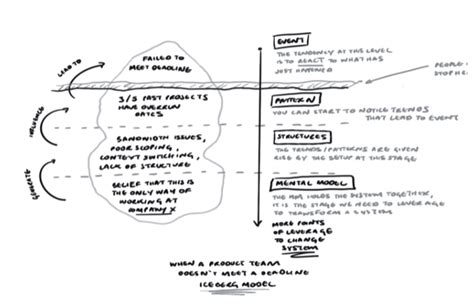 FAILED TO
MEET DEADLINE
3/5 PAST PROJECTS
HAVE OVERRUN
DATES
BANDWIDTH ISSUES,
POOR SCOPING,
CONTEXT SWITCHING,
LACK OF STRUCTURE
BELIEF THAT THIS IS
THE ONLY WAY OF
WORKING AT
COMPANY X
LEAD TO
INFLUENCES
GENERATE
EVENT
THE TENDENCY AT THIS LEVEL
IS TO REACT TO WHAT HAS
JUST HAPPENED
PEOPLE
STOP HE
PATTERN
YOU CAN START TO NOTICE TRENDS
THAT LEAD TO EVENT
STRUCTURES
THE TRENDS/PATTERNS ARE GIVEN
RISE BY THE SETUP AT THIS STAGE
MENTAL MODEL
THE HOLDS THE SYSTEM TOGETHER,
IT IS THE STAGE WE NEED TO LEVERAGE
TO TRANSFORM A SYSTEM
MORE POINTS
OF LEVERAGE
TO CHANGE
SYSTEM
WHEN A PRODUCT TEAM
DOESN'T MEET A DEADLINE
ICEBERG MODEL